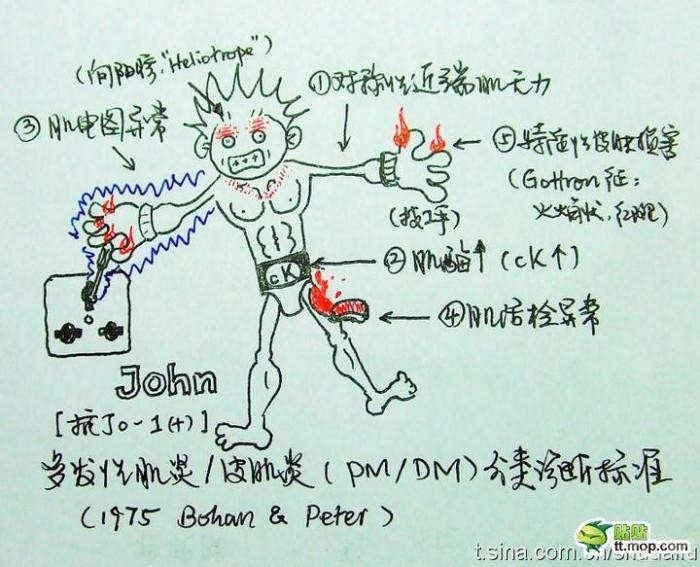 (向阳疹,"Heliotrope")
①对称性近端肌无力
③肌电图异常
⑤特征性皮肤损害
(Gottron征:
火焰状,红斑)
(技工手)
②肌酶↑(CK↑)
CK
④肌活检异常
John
[抗Jo-1(+)]
多发性肌炎/皮肌炎(PM/DM)分类诊断标准
(1975 Bohan & Peter)
贴贴
tt.mop.com